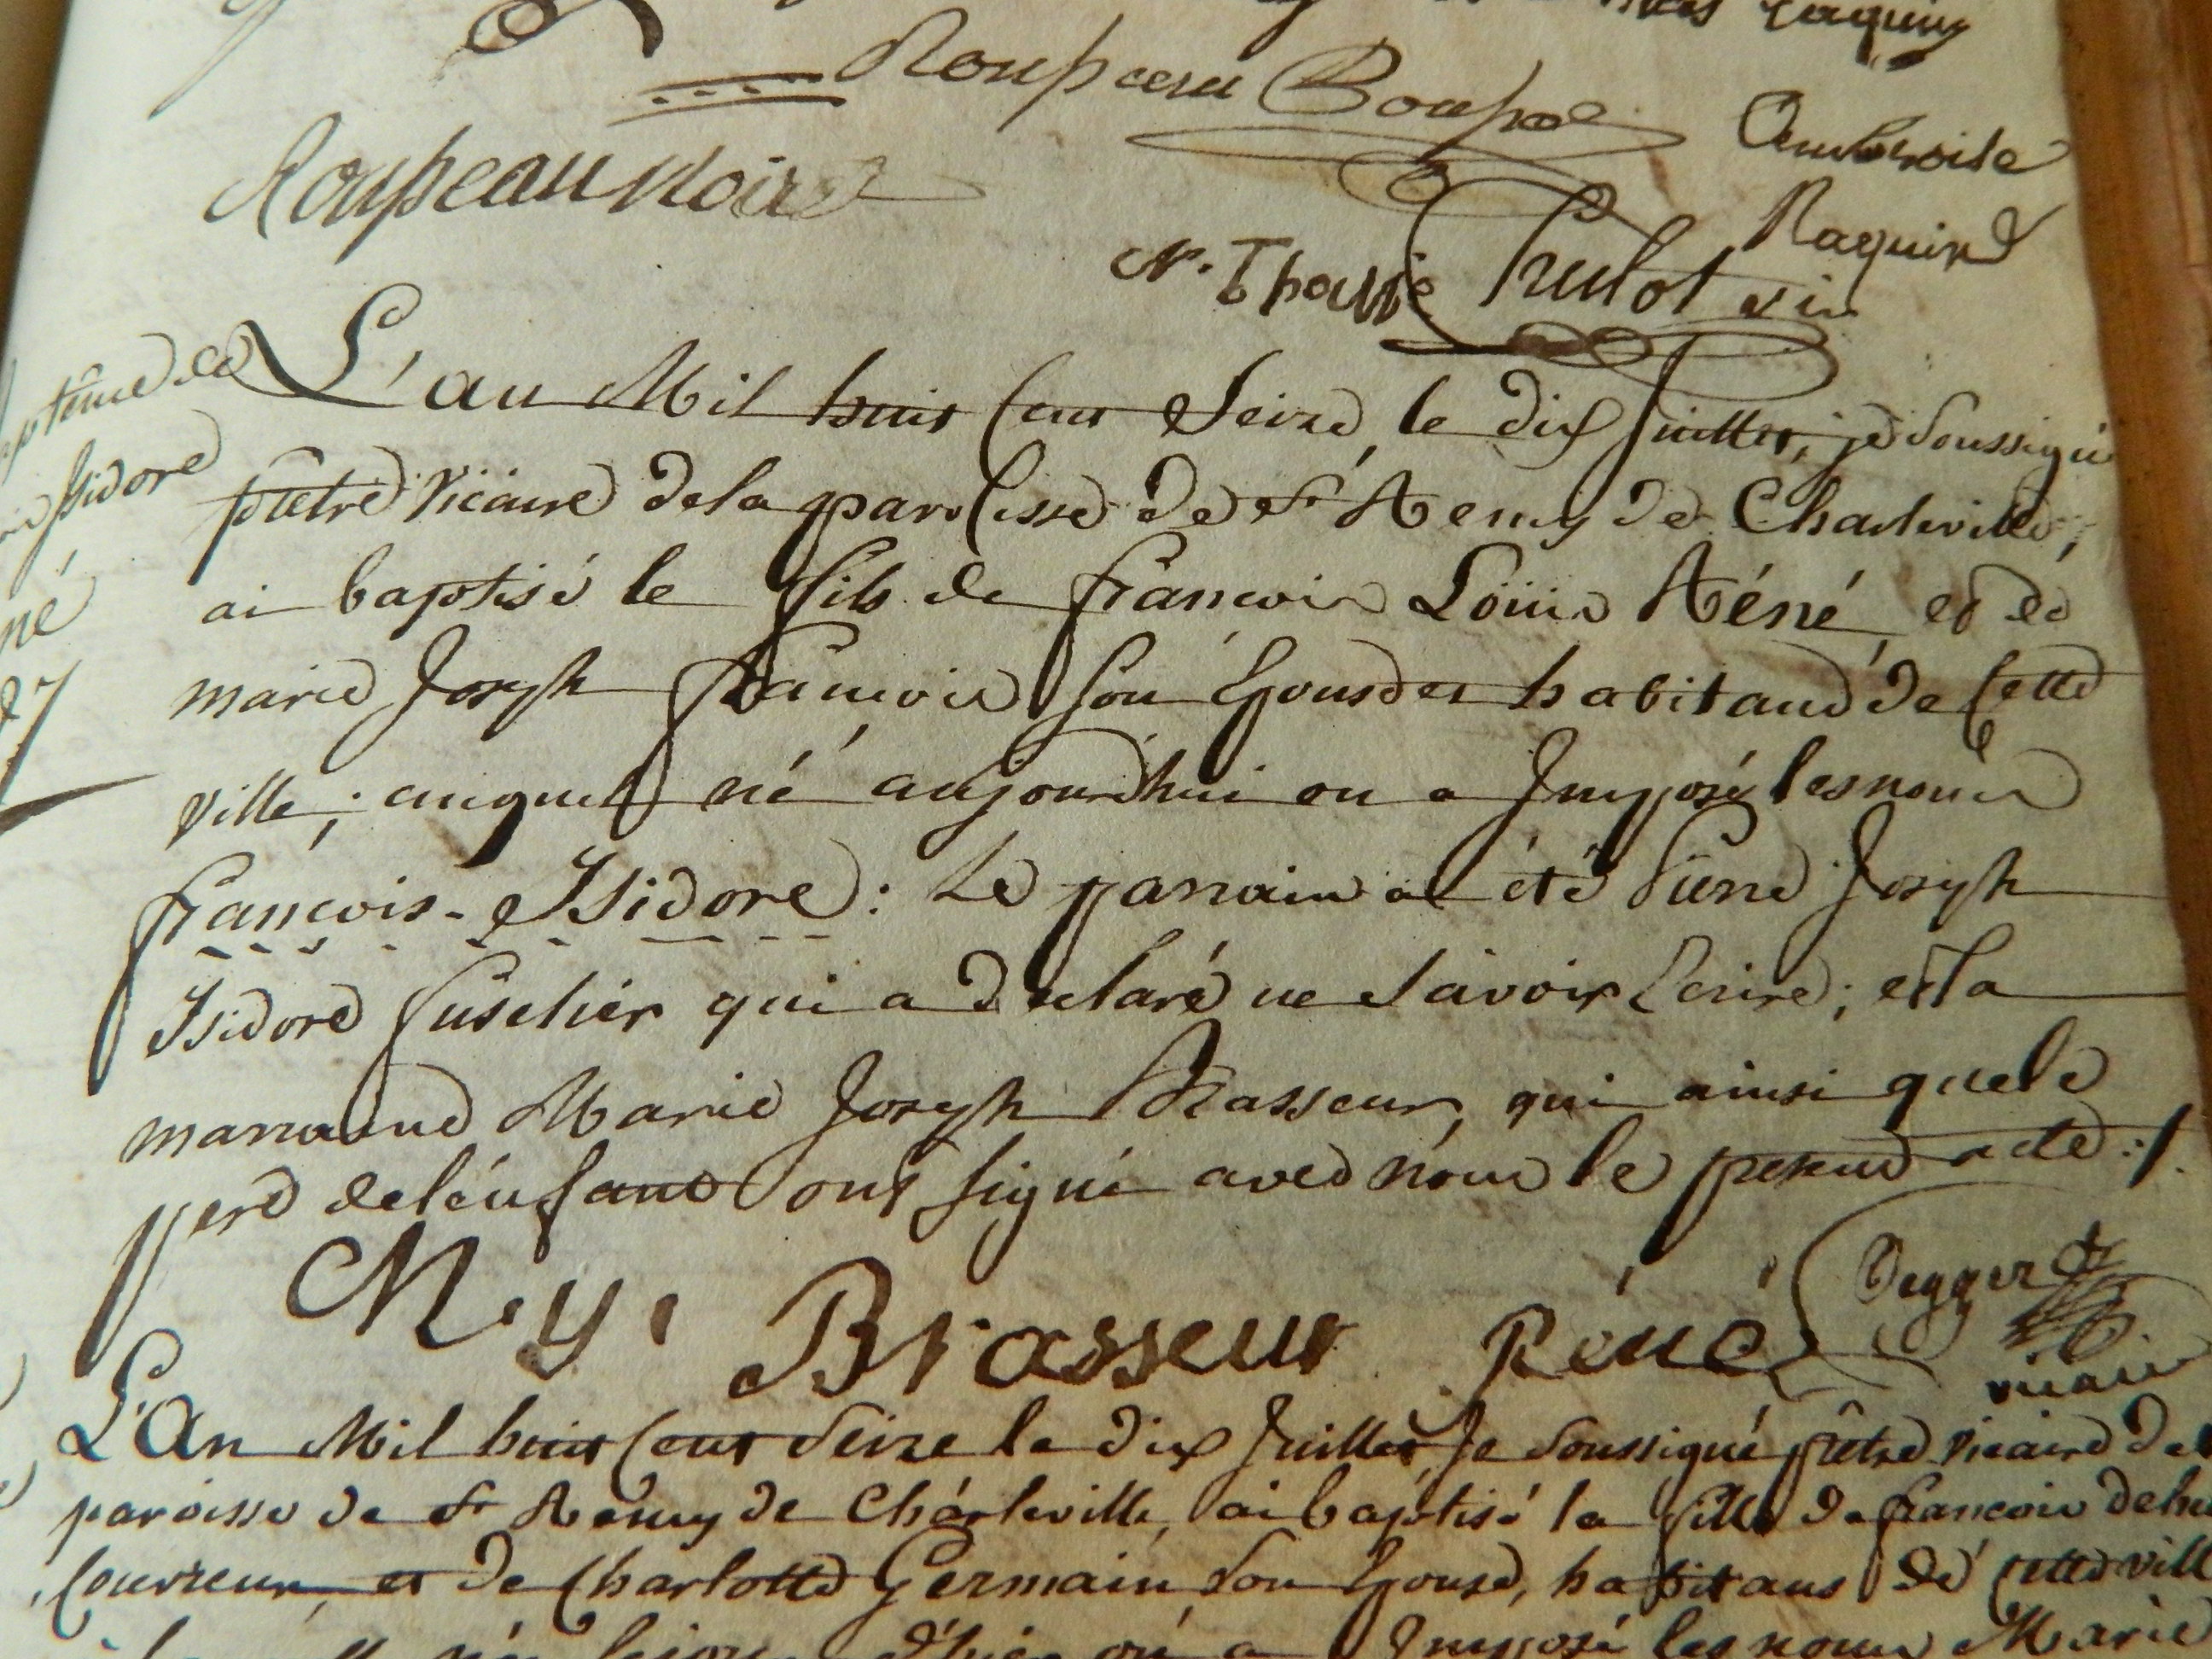 Roupeau Boupe
Ambroise
Roupeau Noiret
Raquin
N. Thomé Hulot vic
L'an Mil huit Cent Seize, le dix Juillet, je soussigné
prêtre vicaire de la paroisse de St Remy de Charleville,
ai baptisé le fils de françois Louis Réné, et de
marie Joseph françois son Epouse habitans de Cette
ville; auquel né aujourd'hui on a Imposé les noms
françois-Isidore: Le parrain a été Pierre Joseph
Isidore fuselier qui a déclaré ne Savoir Ecrire; et la
marraine Marie Joseph Brasseur, qui ainsi que le
pere de l'enfant ont signé avec nous le present acte ./.
M. y. Brasseur Réné
vicaire
L'An Mil huit Cent Seize le dix Juillet Je Soussigné prêtre vicaire de
paroisse de St Remy de Charleville, ai baptisé la fille de françois
Couvreur, et de Charlotte Germain, Son Epouse, habitans de Cette ville
Imposé les noms Marie
Baptême de
Isidore
né